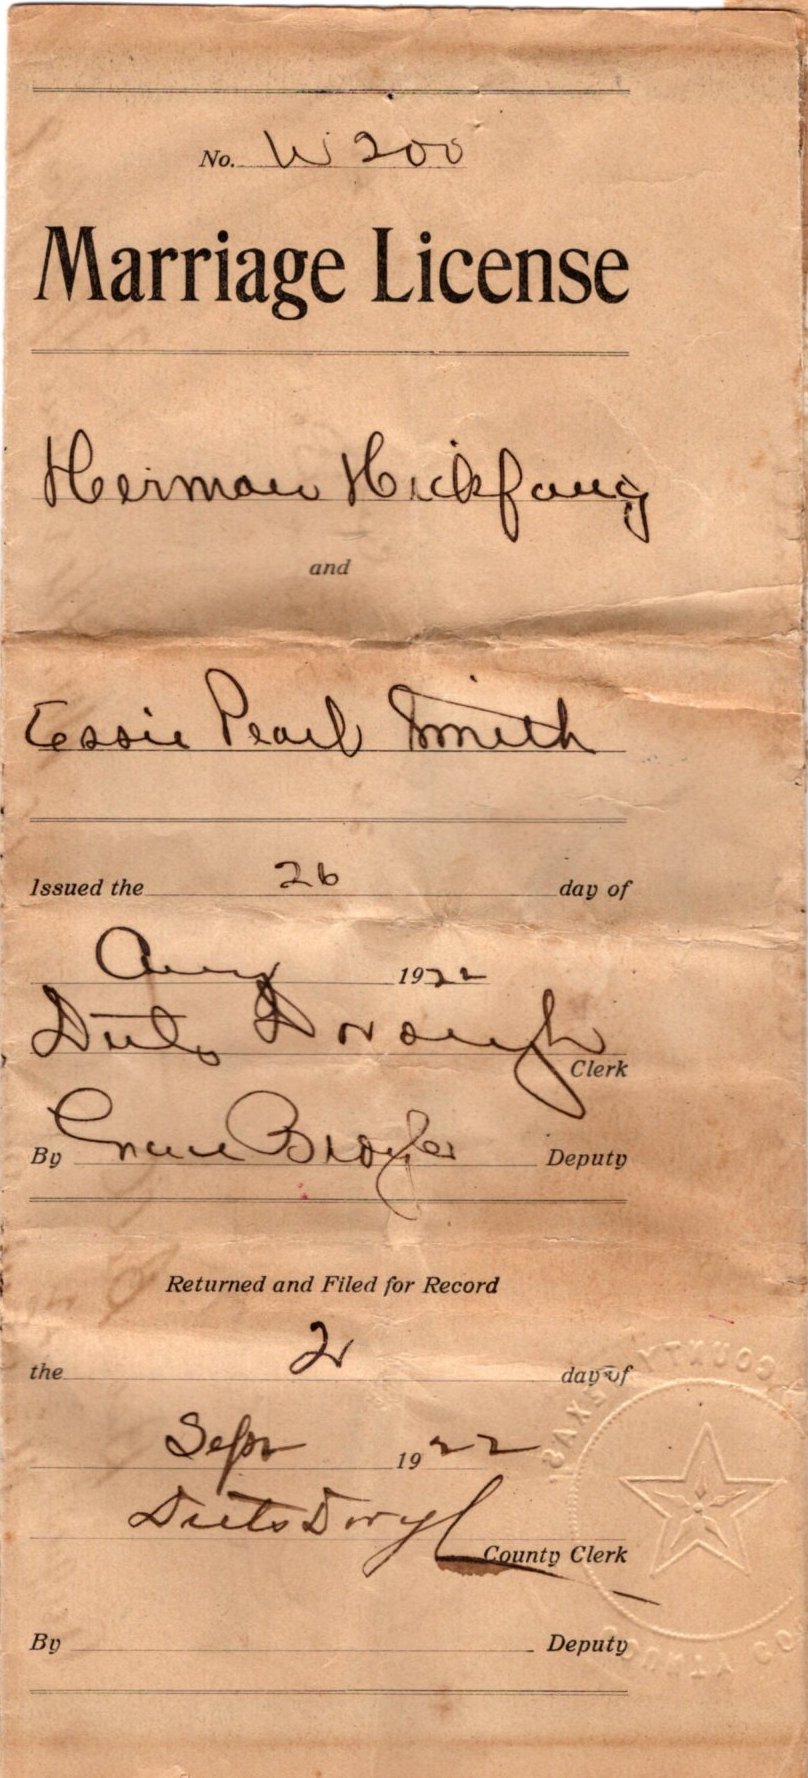 No. W 200
Marriage License
Herman Hickfang
and
Essie Pearl Smith
Issued the 26 day of
Aug 1922
Dorough
Clerk
By Grace Deputy
Returned and Filed for Record
the 2 day of
Sept 1922
County Clerk
By Deputy
COUNTY
TEXAS